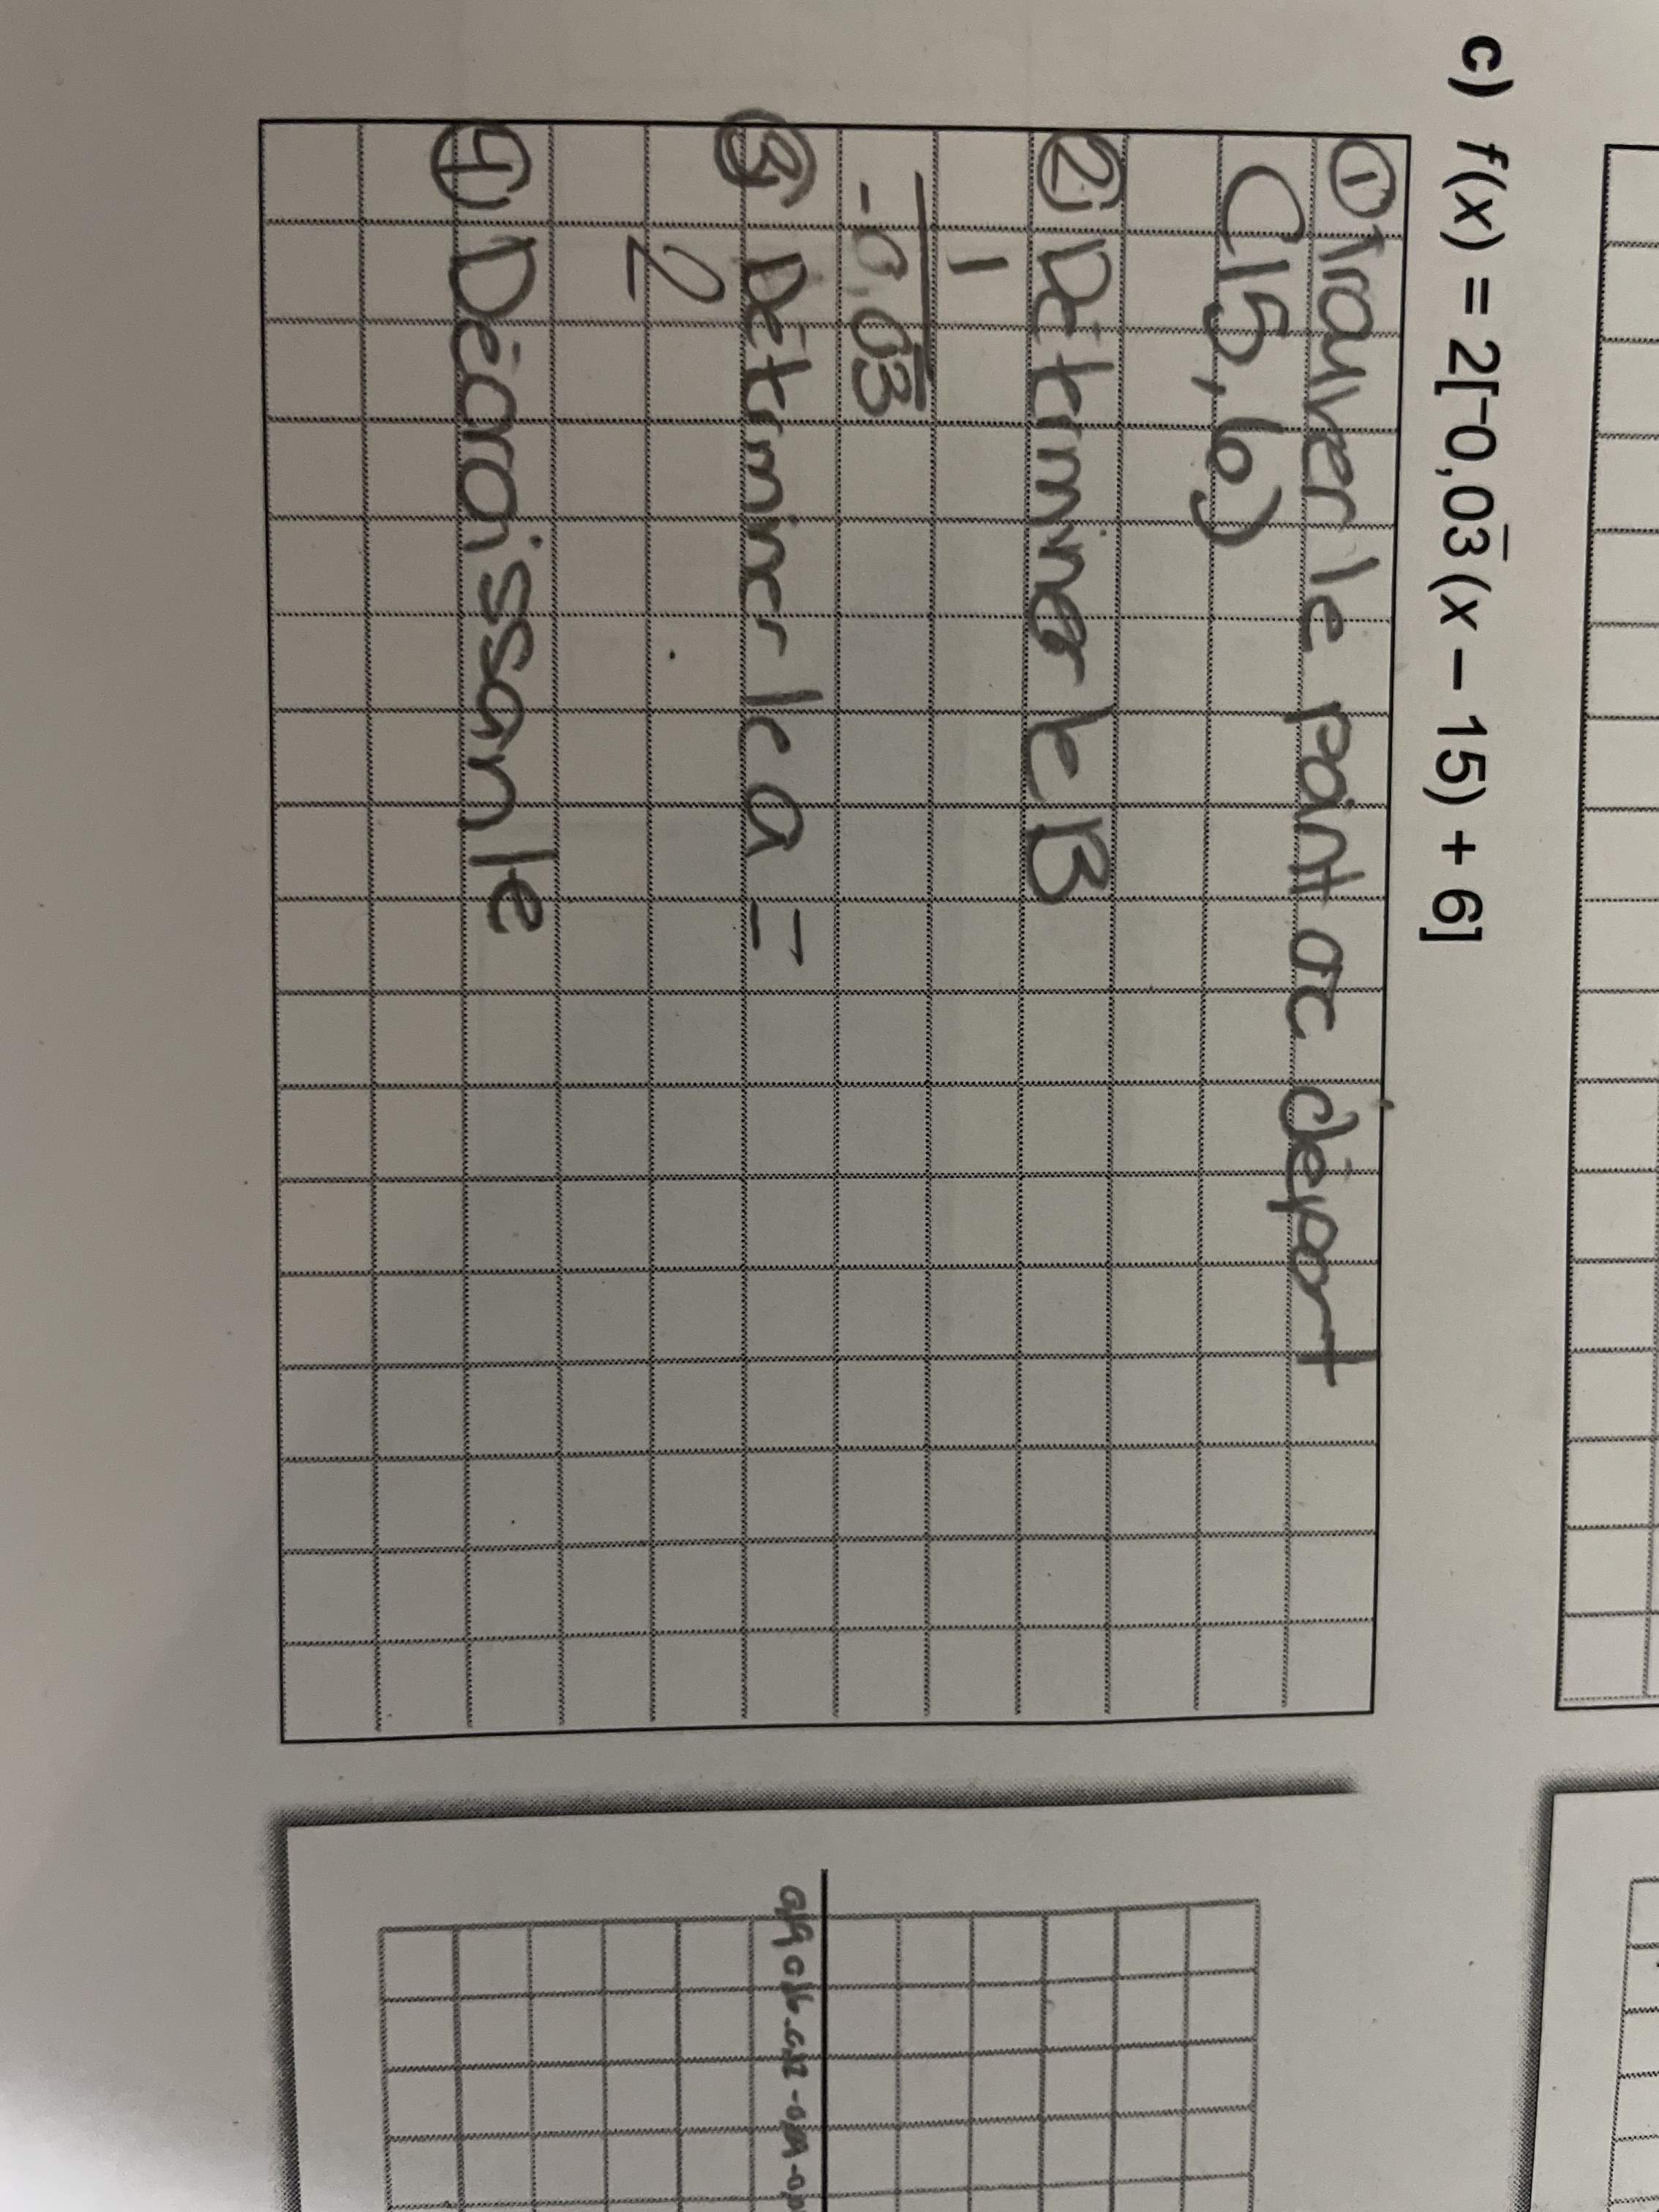 c) f(x) = 2[⁻0,03̅(x – 15) + 6]
① Trouver le point de départ
(15, 6)
② Detrminer le B
1
-0,03̅
③ Detrminer le a =
2
④ Décroissan le